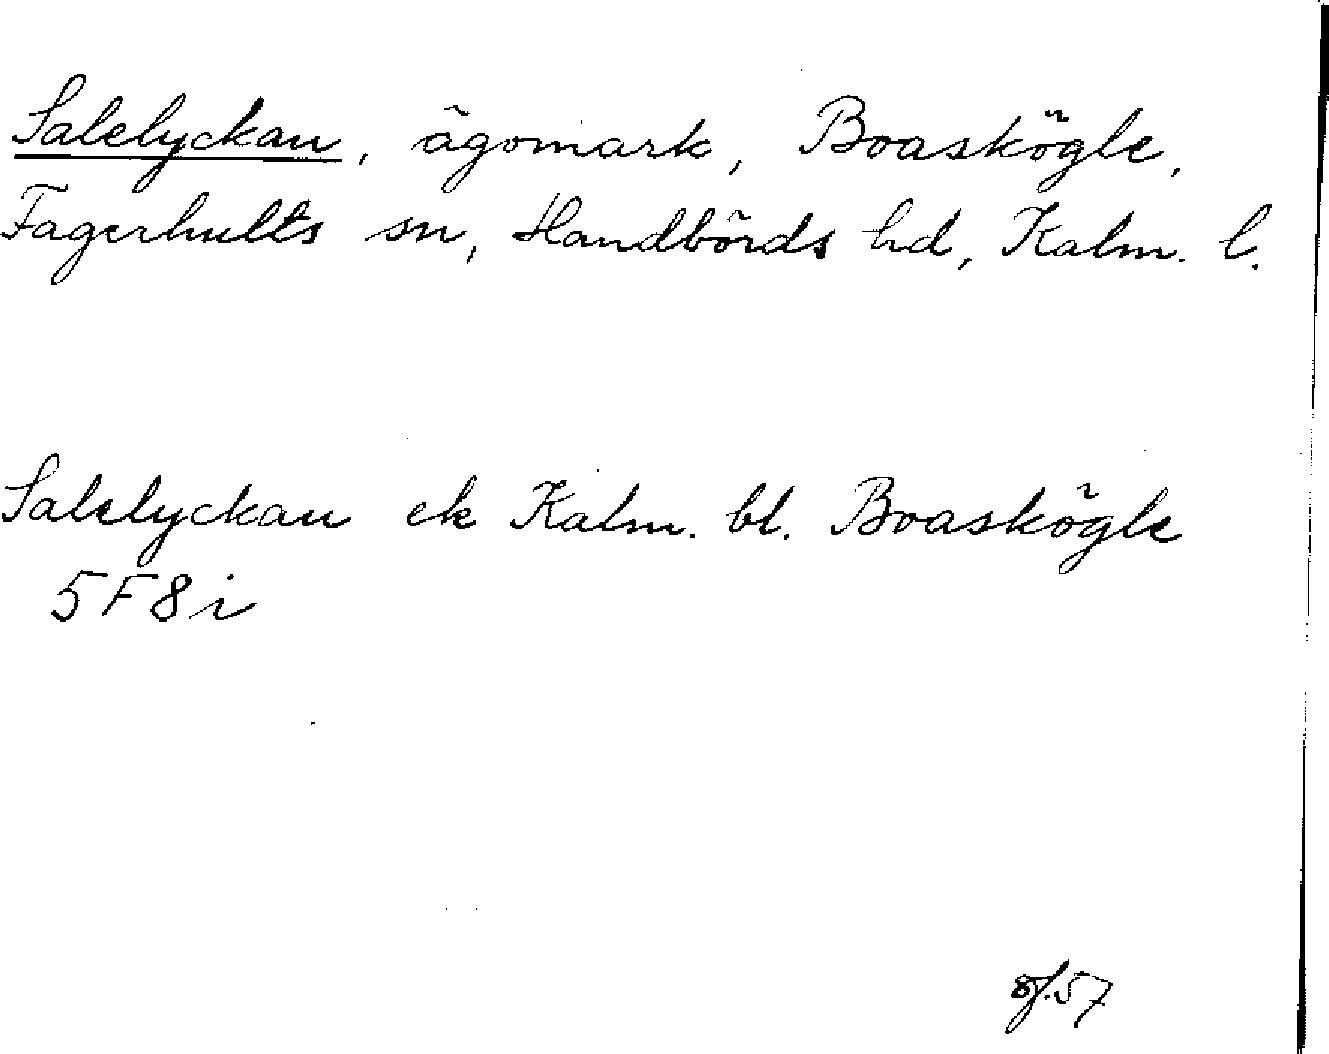 Salelyckan, ägomark, Boaskögle,
Fagerhults sn, Handbörds hd, Kalm. l.
Salelyckan ek Kalm. bl. Boaskögle
5F8i